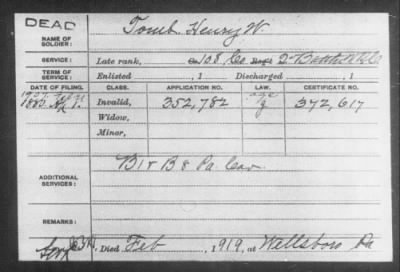 DEAD
NAME OF SOLDIER: Tomb Henry W.
SERVICE: Late rank, Co. 108 Co. Reg't 2" Batt'n V.R.C.
TERM OF SERVICE: Enlisted , 1 Discharged , 1
DATE OF FILING. CLASS. APPLICATION NO. LAW. CERTIFICATE NO.
Invalid, 352,782 372,617
Widow,
Minor,
ADDITIONAL SERVICES: B 1 & B 8 Pa. Cav.
REMARKS:
Died Feb , 1919, at Wellsboro Pa